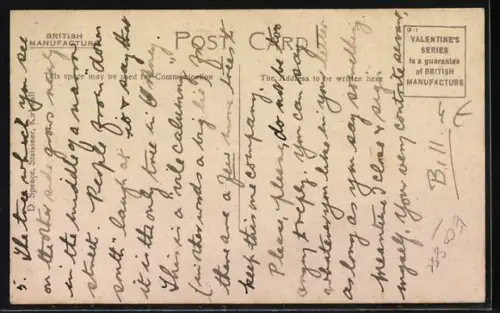 BRITISH
MANUFACTURE
POST CARD
This space may be used for Communication
The Address to be written here
VALENTINE'S
SERIES
is a guarantee
of BRITISH
MANUFACTURE
D. Spence, Stationer, Kirkwall
5. The tree which you see
on the other side grows nearly
in the middle of a narrow
street. People from down
south laugh at it & say that
it is the only tree in Orkney.
This is a "vile calumny"
(in other words a big lie) for
there are a few more trees to
keep this one company.
Please, please, do not be too
angry to reply. You can say
whatever you like in your letter
as long as you say something.
Meantime I close & sign
myself, Your very contrite servant,
Bill.